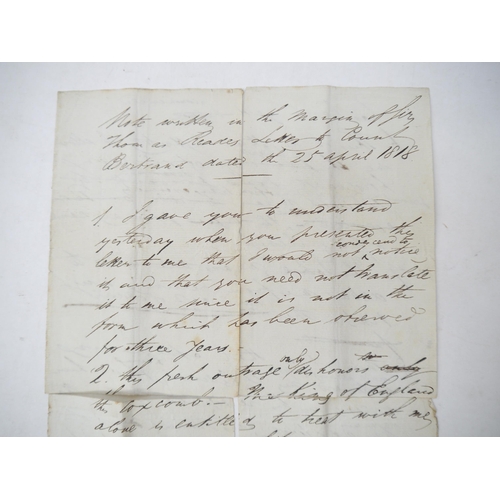 Note written in the Margin of Sir
Thomas Reades Letter to Count
Bertrand dated th 25 april 1818
1. I gave you to understand
yesterday when you presented this
letter to me that I would not condescend to notice
it and that you need not translate
it to me since it is not in the
form which has been observed
for three Years.-
2. this fresh outrage only dishonors
this coxcomb - the King of England
alone is entitled to treat with me